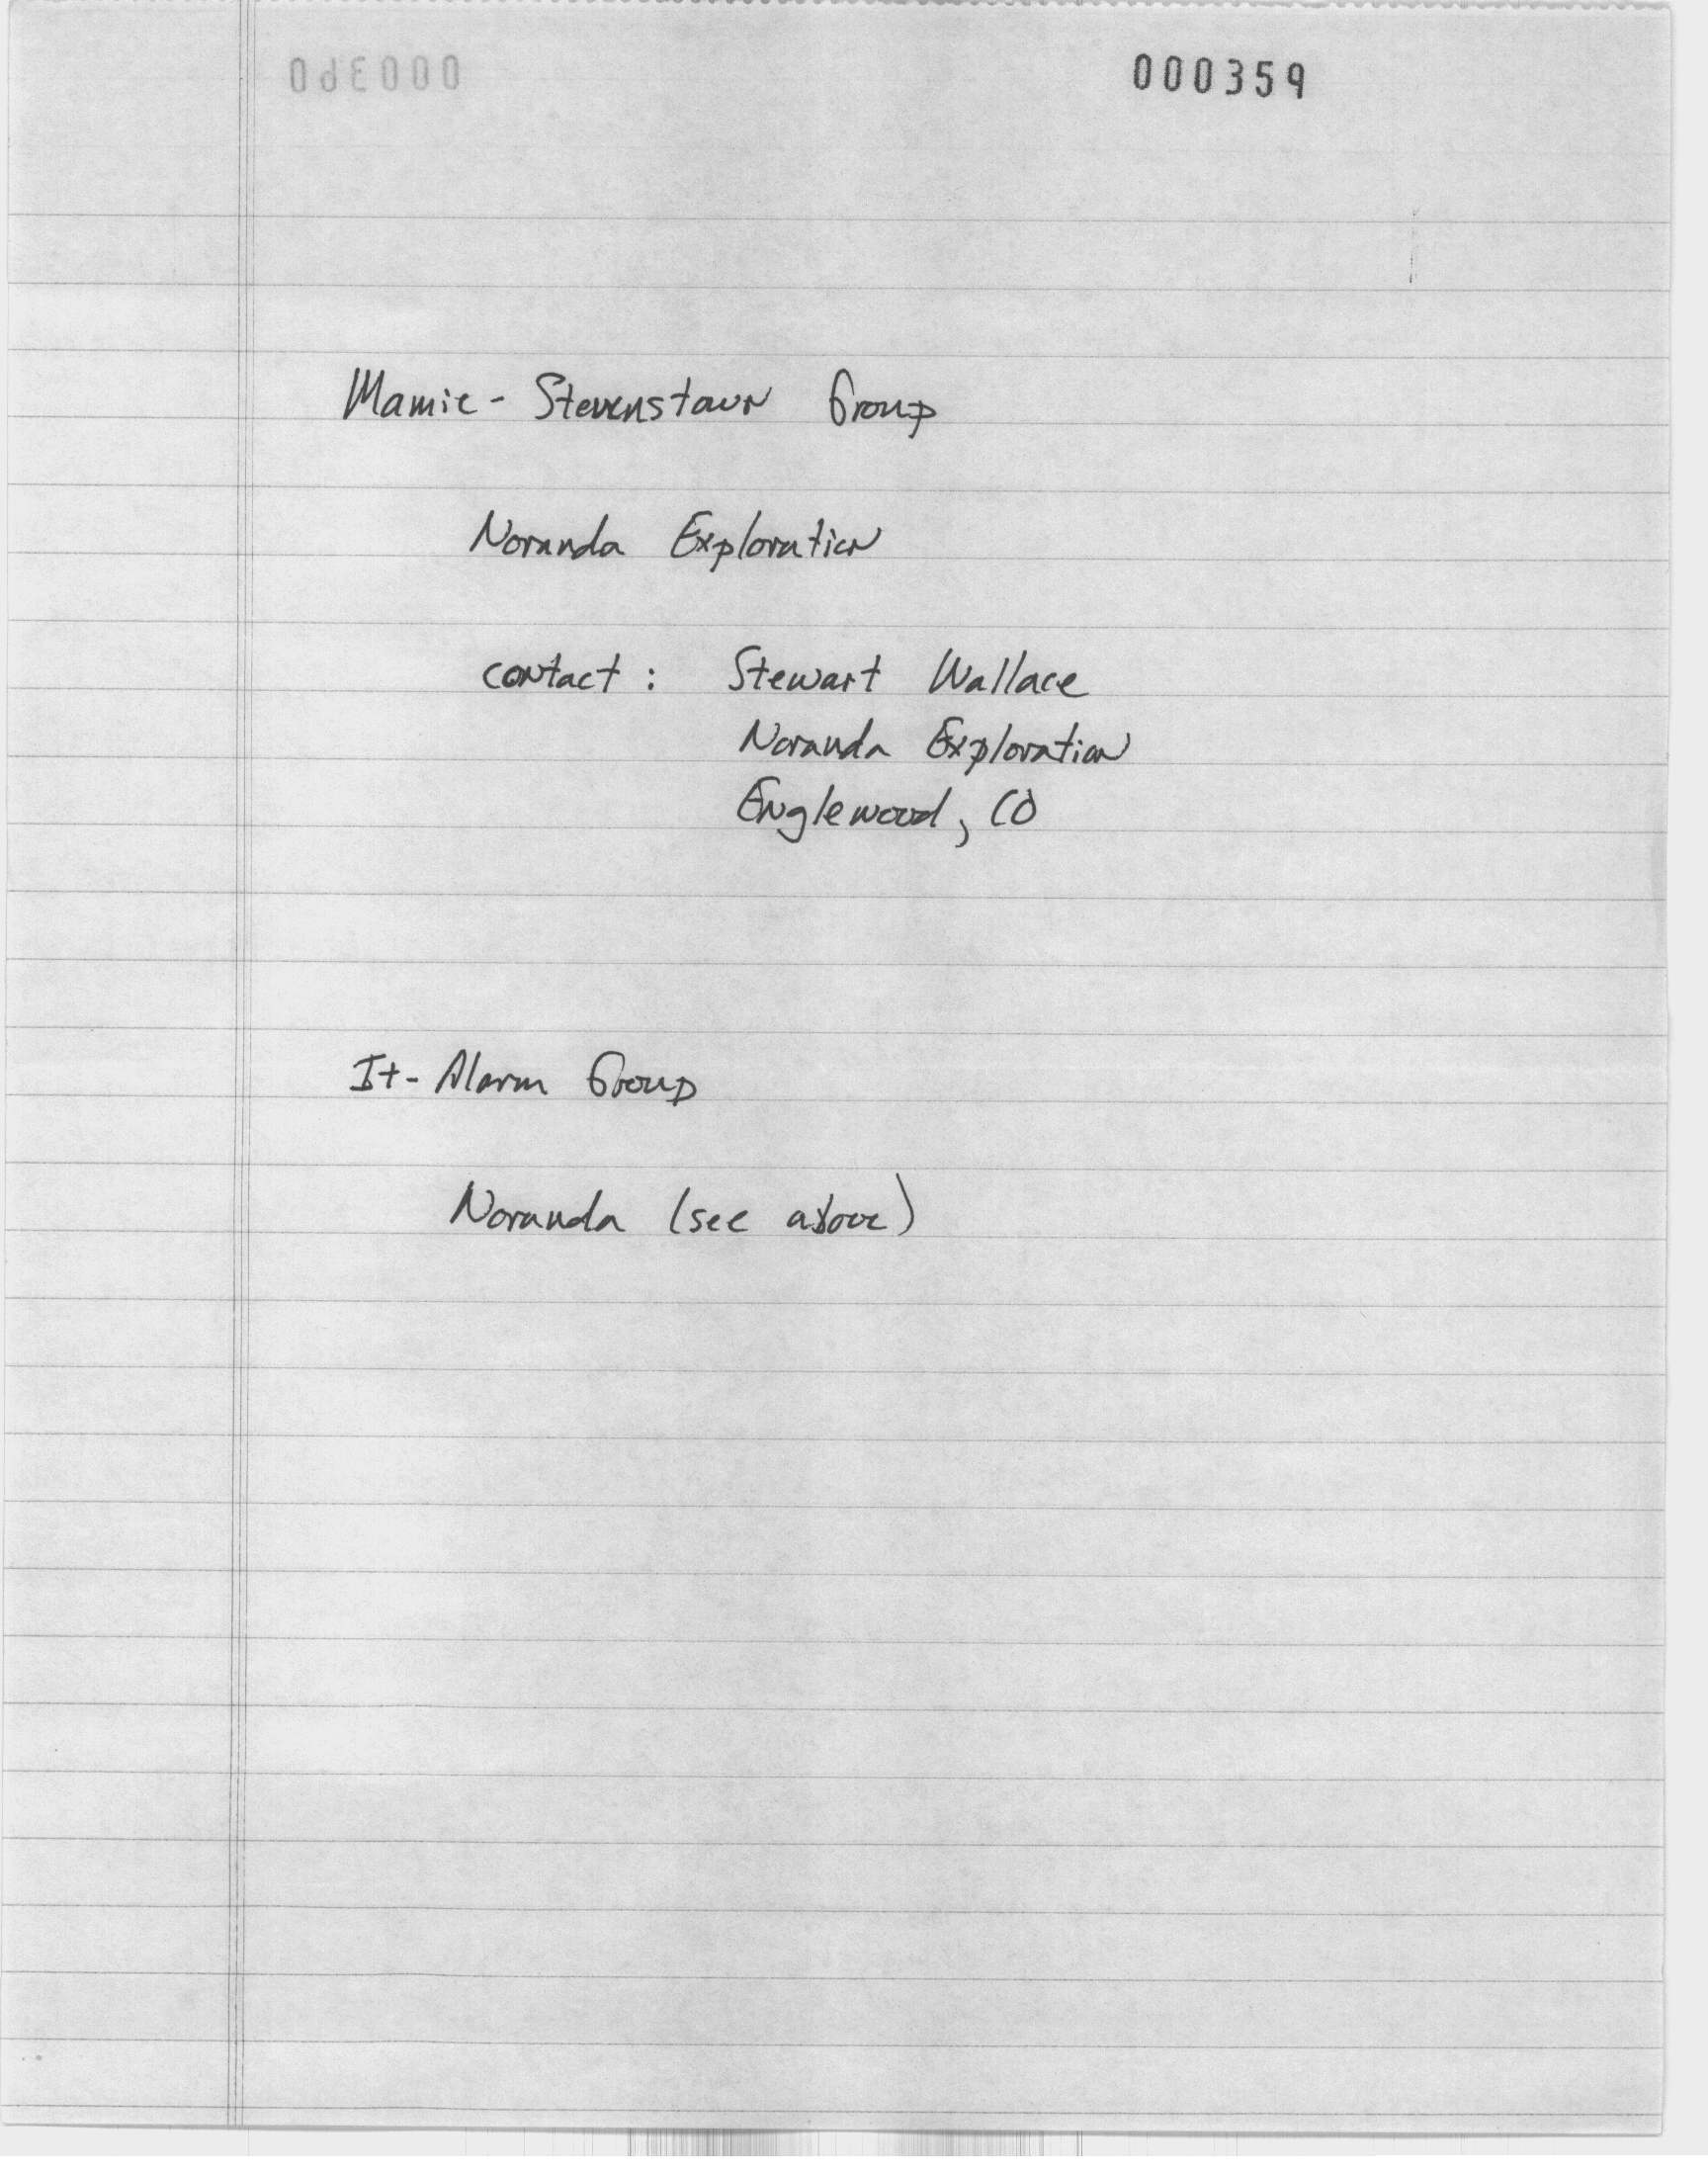 000359
Mamie - Stevenstown Group
Noranda Exploration
contact : Stewart Wallace
Noranda Exploration
Englewood, CO
It - Alarm Group
Noranda (see above)